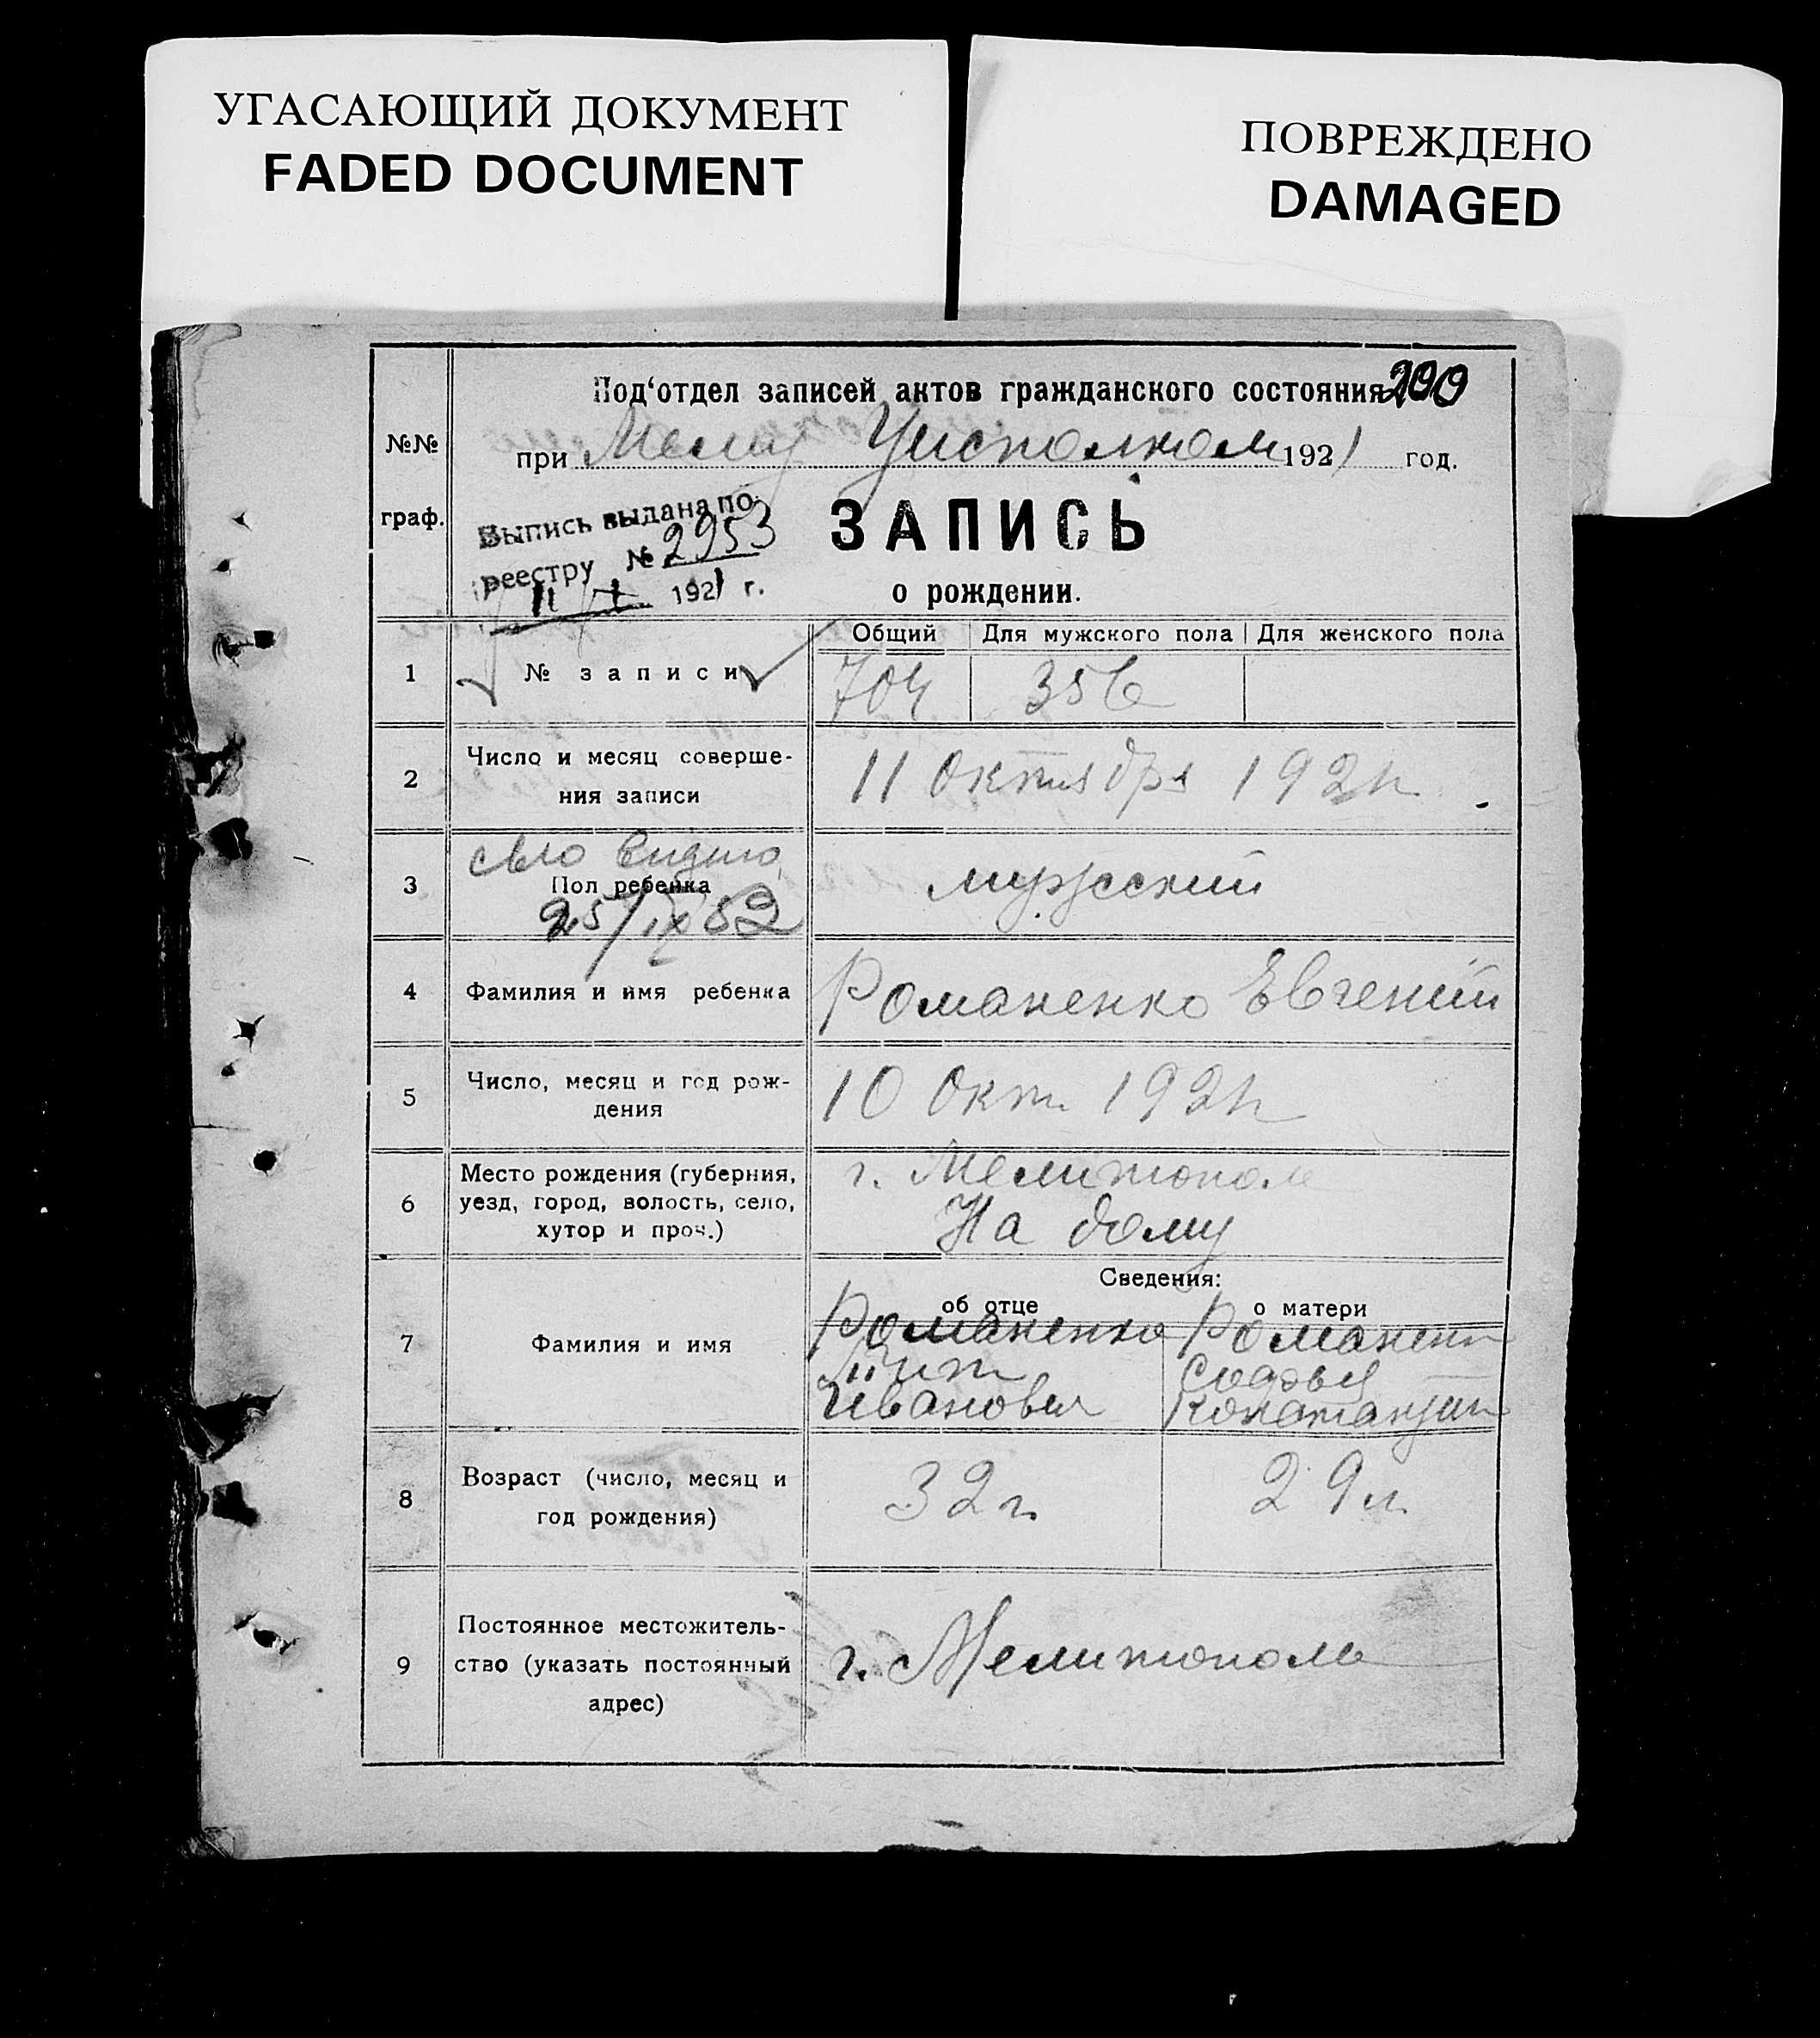 УГАСАЮЩИЙ ДОКУМЕНТ
FADED DOCUMENT
ПОВРЕЖДЕНО
DAMAGED
Под‘отдел записей актов гражданского состояния
200
№№
граф.
при Мелит Уисполком 1921 год.
Выпись выдана по
реестру № 2953
1921 г.
ЗАПИСЬ
о рождении.
Общий Для мужского пола Для женского пола
1 № записи 704 356
2 Число и месяц соверше-
ния записи
11 октября 1921 г.
3 Пол ребенка
25/IX 52
мужской
4 Фамилия и имя ребенка Романенко Евгений
5 Число, месяц и год рож-
дения
10 окт. 1921 г
6 Место рождения (губерния,
уезд, город, волость, село,
хутор и проч.)
г. Мелитополь
На дому
Сведения:
об отце о матери
7 Фамилия и имя
Романенко
Иванович
Романенк
Софья
Константин
8 Возраст (число, месяц и
год рождения)
32 г. 29 л.
9 Постоянное местожитель-
ство (указать постоянный
адрес)
г. Мелитополь